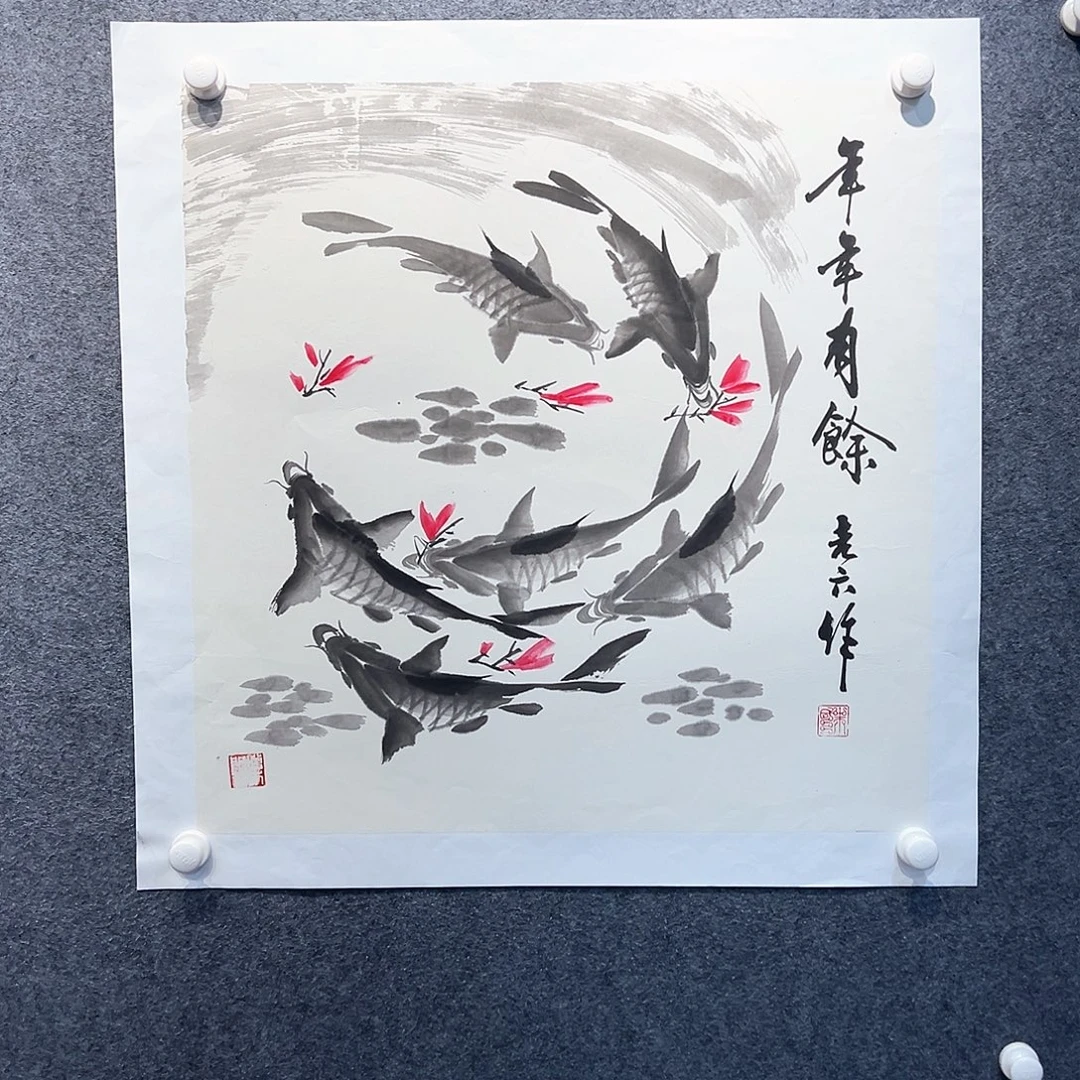 年年有餘
老六作